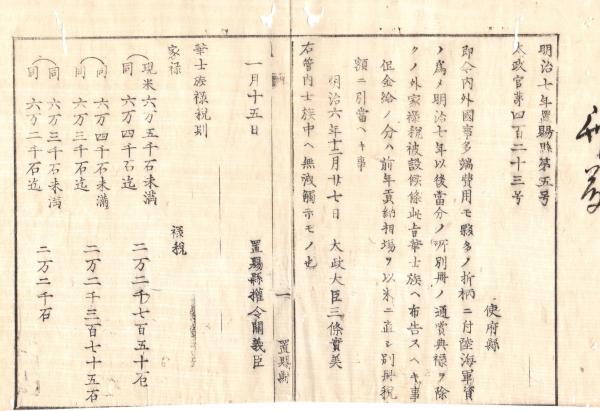 明治七年置賜縣第五号
太政官第四百二十三号
使府縣
即今内外國事多端費用モ夥多ノ折柄ニ付陸海軍資
ノ為メ明治七年以後當分ノ所別冊ノ通賞典禄ヲ除
クノ外家禄税被設候條此旨華士族ヘ布告スヘキ事
但金給ノ分ハ前年貢納相場ヲ以米ニ直シ別冊税
額ニ引當ヘキ事
明治六年十二月廿七日 太政大臣三條實美
右管内士族中ヘ無洩觸示モノ也
一月十五日 置賜縣權令關義臣
一 置賜縣
華士族禄税則
家禄 禄税
現米六万五千石未満
同 六万四千石迄 二万二千七百五十石
同 六万四千石未満
同 六万三千石迄 二万二千三百七十五石
同 六万三千石未満
同 六万二千石迄 二万二千石